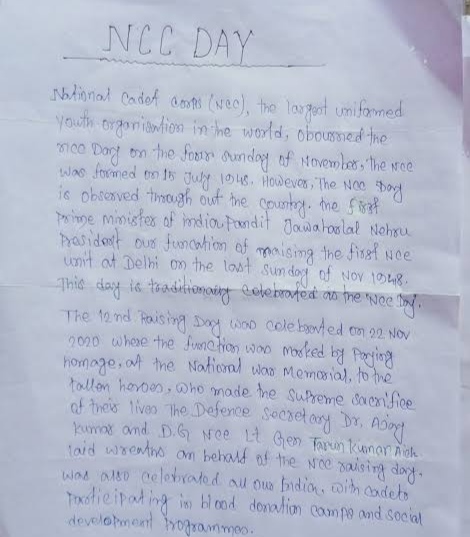 NCC DAY
National Cadet Corps (NCC), the largest uniformed
youth organisation in the world, obourned the
ncc Day on the foour sunday of November, The NCC
was formed on 15 July 1948. However, The NCC Day
is observed through out the country. the first
prime minister of india Pandit Jawaharlal Nehru
Prasident our funcation of maising the first NCC
unit at Delhi on the last sunday of Nov 1948.
This day is traditionaly celebrated as the NCC Day.
The 12nd Raising Day was celebrated on 22 NOV
2020 where the function was marked by Paying
homage, at the National War Memorial, to the
fallen heroes, who made the supreme sacrifice
of their lives The Defence Secretary Dr. Ajay
Kumar and D.G NCC Lt Gen Tarun Kumar Aich
laid wreaths on behalf of the NCC raising day.
was also celebrated all our India, with cadets
Participating in blood donation camps and social
development Programmes.